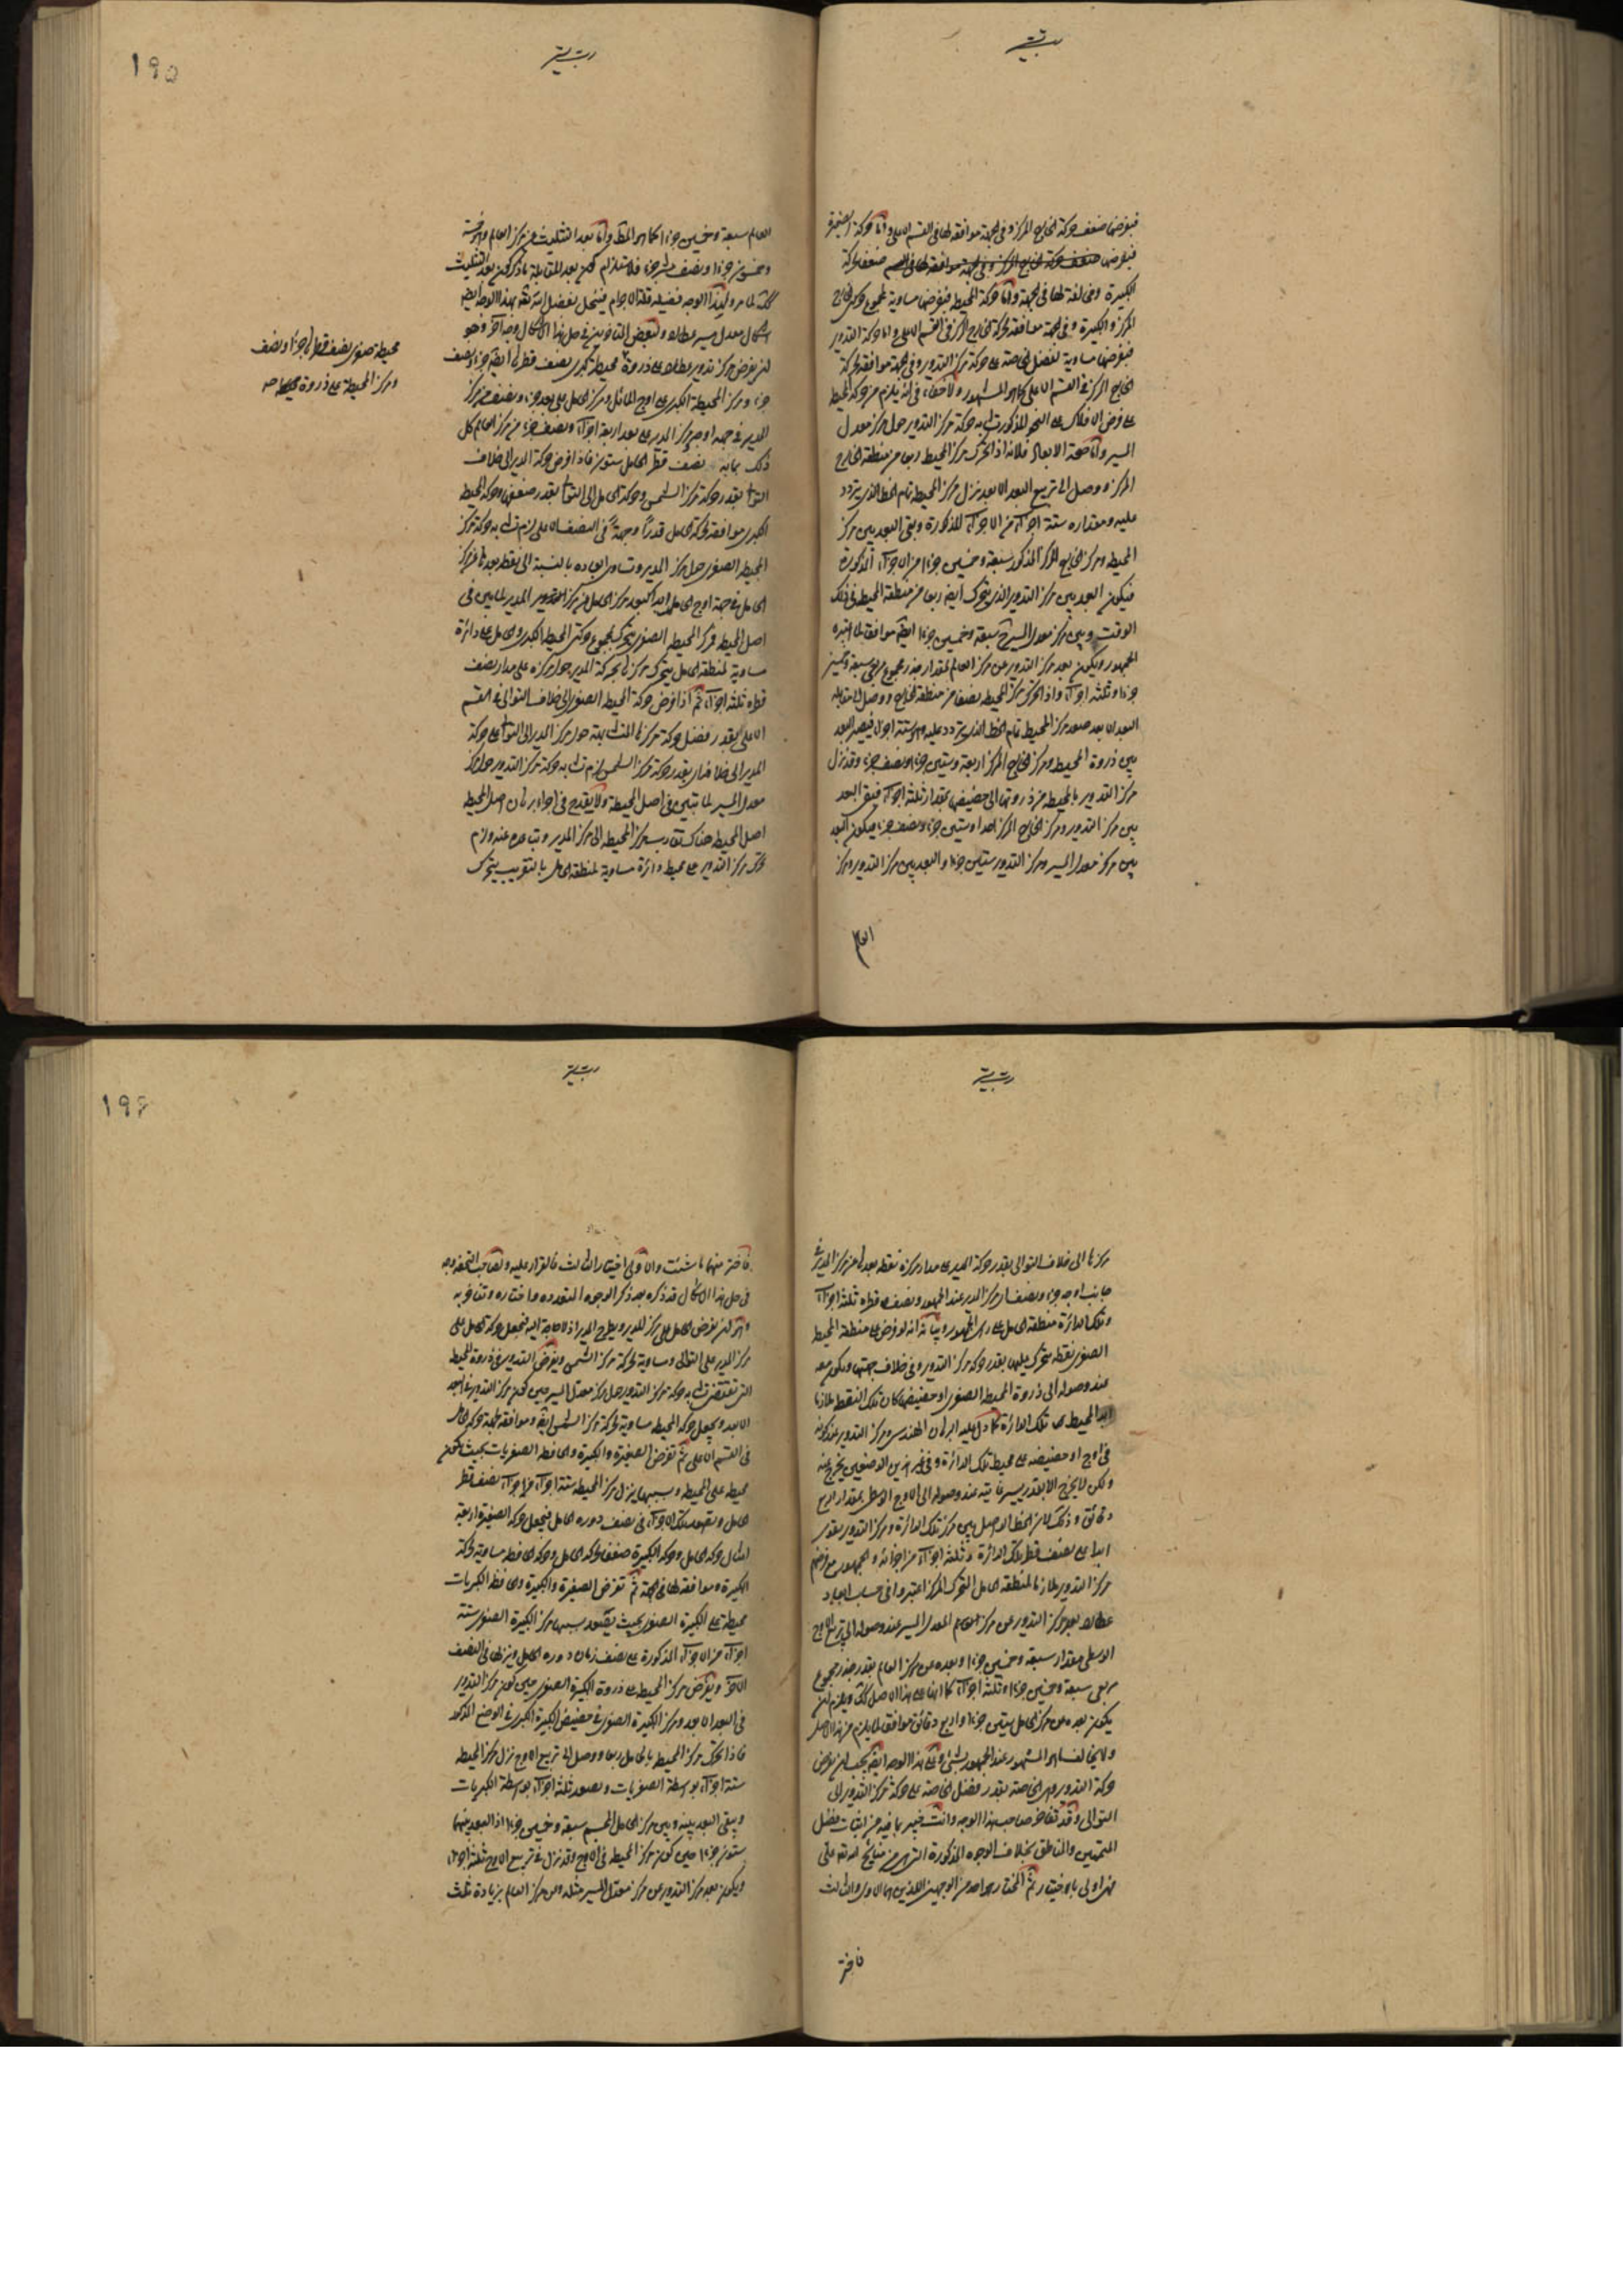 فنفرضها ضعف حركة الخارج المركز وفى الجهة موافقة لها فى القسم الاعلى واما حركة الصغيرة
فنفرضها ضعف حركة
الكبيرة ومخالفة لها فى الجهة واما حركة المحيط فنفرضها مساوية لمجموع حركتى الخارج
المركز والكبيرة وفى الجهة موافقة لحركة الخارج المركز فى القسم الاعلى واما حركة التدوير
فنفرضها مساوية لفضل الخاصة على حركة مركز التدوير وفى الجهة موافقة لحركة
الخارج المركز فى القسم الاعلى كما هو المشهور ولا خفاء فى انه يلزم من حركة المحيط
على فرض الافلاك على النحو المذكور تشابه حركة مركز التدوير حول مركز معدل
المسير واما صحة الابعاد فلانه اذا تحرك مركز المحيط ربعا من منطقة الخارج
المركز ووصل الى تربيع البعد الابعد نزل مركز المحيط تمام الخط الذى يتردد
عليه ومقداره ستة اجزاء من الاجزاء المذكورة وبقى البعد بين مركز
المحيط ومركز الخارج المركز المذكور سبعة وخمسين جزءا من الاجزاء المذكورة
فيكون البعد بين مركز التدوير الذى يتحرك ايضا ربعا من منطقة المحيط فى ذلك
الوقت وبين مركز معدل المسير سبعة وخمسين جزءا ايضا موافقا لما اعتبره
الجمهور ويكون بعد مركز التدوير عن مركز العالم بمقدار جذر مجموع مربعى سبعة وخمسين
جزءا وثلثة اجزاء واذا تحرك مركز المحيط نصفا من منطقة الخارج ووصل الى مقابلة
البعد الابعد صعد مركز المحيط تمام الخط الذى يتردد عليه وهو ستة اجزاء فيصير البعد
بين ذروة المحيط ومركز الخارج المركز اربعة وستين جزءا ونصف جزء وقد نزل
مركز التدوير بالمحيطة من ذروتها الى حضيضها بمقدار ثلثة اجزاء فبقى البعد
بين مركز التدوير ومركز الخارج المركز احدا وستين جزءا ونصف جزء فيكون البعد
بين مركز معدل المسير ومركز التدوير ستين جزءا والبعد بين مركز التدوير ومركز
العالم
١٩٥
العالم سبعة وخمسين جزءا كما هو المطلوب واما بعد التثليث عن مركز العالم وهو خمسة
وخمسون جزءا ونصف عشر جزء فلاستلزام كون بعد المقابلة ما ذكر كون بعد التثليث
اشكال معدل مسير عطارد ولبعض المتاخرين فى حل هذا الاشكال وجه آخر وهو
ان يفرض مركز تدوير عطارد على ذروة محيطة كبرى نصف قطرها ايضا جزء ونصف
جزء ومركز المحيطة الكبرى على اوج المائل ومركز الحامل على بعد جزء ونصف من مركز
المدير فى جهة اوجه ومركز المدير على بعد اربعة اجزاء ونصف جزء من مركز العالم كل
ذلك بما به نصف قطر الحامل ستون فاذا فرض حركة المدير الى خلاف
التوالى بقدر حركة مركز الشمس وحركة الحامل الى التوالى بقدر ضعفها وحركة المحيطة
الكبرى موافقة لحركة الحامل قدرا وجهة فى النصف الاعلى لزم تشابه حركة مركز
المحيطة الصغرى حول مركز المدير وتساوى ابعاده بالنسبة الى نقطة بعدها عن مركز
الحامل فى جهة اوج الحامل ابدا كبعد مركز الحامل عن مركز المدير لما تبين فى
اصل المحيطة فمركز المحيطة الصغرى يتحرك بمجموع حركتى المحيطة الكبرى والحامل على دائرة
مساوية لمنطقة الحامل يتحرك مركزها بحركة المدير حول مركزه على مدار نصف
قطره ثلثة اجزاء ثم اذا فرض حركة المحيطة الصغرى الى خلاف التوالى فى القسم
الاعلى بقدر فضل حركة مركزها المتشابهة حول مركز المدير الى التوالى على حركة
المدير الى خلافه اى بقدر حركة مركز الشمس لزم تشابه حركة مركز التدوير حول مركز
معدل المسير لما تبين فى اصل المحيطة ولا يقدح فى اجراء برهان اصل المحيطة
اصل المحيطة هناك تقارب مركز المحيطة الى مركز المدير وتباعده عنه ولزم
تحرك مركز التدوير على محيط دائرة مساوية لمنطقة الحامل بالتقريب يتحرك
محيطة صغرى نصف قطرها جزء ونصف
ومركز المحيطة على ذروة محيطة صح
مركزها الى خلاف التوالى بقدر حركة المدير على مدار مركزه نقطة بعدها عن مركز المدير فى
جانب اوجه جزء ونصف اى مركز المدير عند الجمهور ونصف قطره ثلثة اجزاء
وتلك الدائرة منطقة الحامل على راى الجمهور وبيانه انه لو فرض على منطقة المحيطة
الصغرى نقطة يتحرك عليها بقدر حركة مركز التدوير وفى خلاف جهتها ويكون معه
عند وصوله الى ذروة المحيطة الصغرى او حضيضها كان تلك النقطة ملازما
ابدا لمحيط تلك الدائرة كما دل عليه البرهان الهندسى ومركز التدوير عند كونه
فى اوج او حضيضه على محيط تلك الدائرة وفى غير هذين الوضعين يخرج عنه
ولكن لا يخرج الا بقدر يسير غايته عند وصوله الى الاوج الاوسط بمقدار اربع
دقائق وذلك لان الخط الواصل بين مركز تلك الدائرة ومركز التدوير يقوى
ابدا على نصف قطر تلك الدائرة وثلثة اجزاء من اجزائه والجمهور مع فرضهم
مركز التدوير ملازما لمنطقة الحامل المتحرك المركز اعتبروا فى حساب ابعاد
عطارد بعد مركز التدوير عن مركز معدل المسير عند وصوله الى تربيع الاوج
الاوسط بمقدار سبعة وخمسين جزءا وبعده عن مركز العالم بقدر جذر مجموع
مربعى سبعة وخمسين جزءا وثلثة اجزاء كما انها على هذا الاصل كذلك ويلزم ان
يكون بعده عن مركز الحامل ستين جزءا واربع دقائق موافقا لما يلزم من هذا الاصل
ولا يخالف ما هو المشهور عند الجمهور بشئ وفى هذا الوجه ايضا يجب ان يفرض
حركة التدوير وهى الخاصة بقدر فضل الخاصة على حركة مركز التدوير الى
التوالى وقد تفاخر صاحب هذا الوجه وانت خبير بما فيه من اثبات فضل
المتممين والمناطق بخلاف الوجوه المذكورة التى هى من نتائج
فهى اولى بالاختيار ثم المختار هو احد من الوجهين اللذين هما الاول والثالث
فاختر
١٩٦
فاختر منهما ما شئت والاولى اختيار الثالث فالقرار عليه ولصاحب التحفة وجه
فى حل هذا الاشكال قد ذكره بعد ذكر الوجوه المتعددة واختاره وتفاخر به
وهو ان يفرض الحامل على مركز المدير ويطرح المدير اذ لا حاجة اليه فيجعل حركة الحامل على
مركز المدير على التوالى ومساوية لحركة مركز الشمس ويفرض التدوير فى ذروة المحيط
التى تقتضى تشابه حركة مركز التدوير حول مركز معدل المسير حين كون مركز التدوير فى البعد
الابعد ويجعل حركة المحيط مساوية لحركة مركز الشمس ايضا وموافقة لجهة حركة الحامل
فى القسم الاعلى ثم تفرض الصغيرة والكبيرة والحافظة الصغريات بحيث تكون
محيطة على المحيطة وبسببها ينزل مركز المحيطة ستة اجزاء من اجزاء نصف قطر
الحامل ويصعد تلك الاجزاء فى نصف دورة الحامل فيجعل حركة الصغيرة اربعة
امثال حركة الحامل وحركة الكبيرة ضعف حركة الحامل وحركة الحافظة مساوية لحركة
الكبيرة وموافقة لها فى الجهة ثم تفرض الصغيرة والكبيرة والحافظة الكبريات
محيطة على الكبيرة الصغرى بحيث يصعد بسببها مركز الكبيرة الصغرى ستة
اجزاء من الاجزاء المذكورة على نصف زمان دورة الحامل وينزلها فى النصف
الآخر ويفرض مركز المحيطة على ذروة الكبيرة الصغرى حين كون مركز التدوير
فى البعد الابعد ومركز الكبيرة الصغرى فى حضيض الكبيرة الكبرى فى الوضع المذكور
فاذا تحرك مركز المحيطة بالحامل ربعا ووصل الى تربيع الاوج نزل مركز المحيطة
ستة اجزاء بواسطة الصغريات وصعد ثلثة اجزاء بواسطة الكبريات
ويبقى البعد بينه وبين مركز الحامل المجسم سبعة وخمسين جزءا اذ البعد بينهما
ستون جزءا حين كون مركز المحيطة فى الاوج وقد نزل فى تربيع الاوج ثلثة اجزاء
ويكون بعد مركز التدوير عن مركز معدل المسير مثله وعن مركز العالم بزيادة ثلث